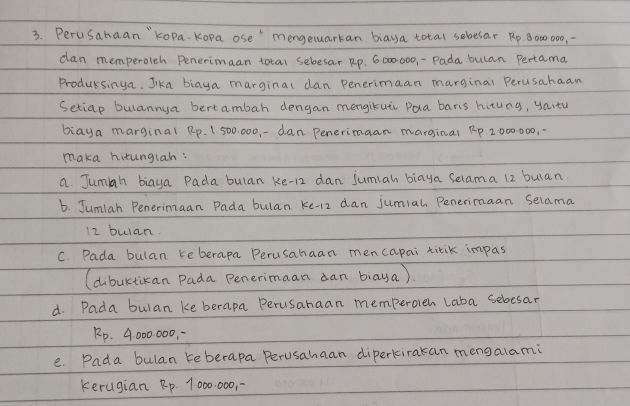 3. Perusahaan "Kopa-Kopa ose" mengeluarkan biaya total sebesar Rp. 8.000.000,-
dan memperoleh Penerimaan total sebesar Rp. 6.000.000,- Pada bulan Pertama
Produksinya. Jika biaya marginal dan Penerimaan marginal Perusahaan
Setiap bulannya bertambah dengan mengikuti Pola baris hitung, yaitu
biaya marginal Rp. 1.500.000,- dan Penerimaan marginal Rp. 2.000.000,-
maka hitunglah :
a. Jumlah biaya Pada bulan ke-12 dan jumlah biaya Selama 12 bulan.
b. Jumlah Penerimaan Pada bulan ke-12 dan jumlah Penerimaan Selama
12 bulan.
c. Pada bulan ke berapa Perusahaan mencapai titik impas
(dibuktikan Pada Penerimaan dan biaya).
d. Pada bulan ke berapa Perusahaan memperoleh Laba Sebesar
Rp. 4.000.000,-
e. Pada bulan ke berapa Perusahaan diperkirakan mengalami
kerugian Rp. 1.000.000,-